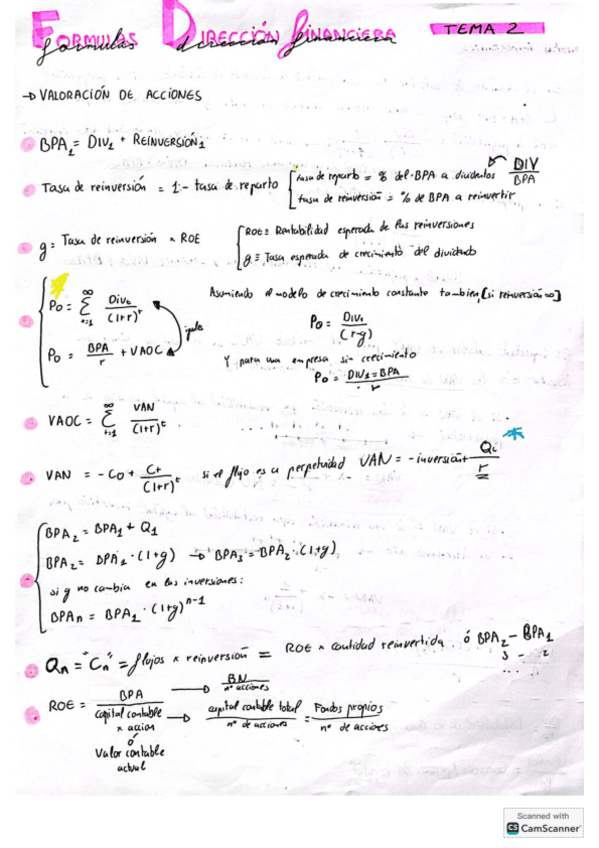 FORMULAS DIRECCIÓN FINANCIERA TEMA 2
→ VALORACIÓN DE ACCIONES
BPA₁ = DIV₁ + REINVERSIÓN₁
Tasa de reinversión = 1 - tasa de reparto { tasa de reparto = % del BPA a dividendos DIV/BPA
tasa de reinversión = % de BPA a reinvertir
g = Tasa de reinversión × ROE { ROE = Rentabilidad esperada de las reinversiones
g ≡ Tasa esperada de crecimiento del dividendo
P₀ = Σ (t=1, ∞) Divₜ / (1+r)ᵗ
Asumiendo el modelo de crecimiento constante tambien [si reinversión ∞]
iguales
P₀ = Div₁ / (r-g)
P₀ = BPA / r + VAOC
Y para una empresa sin crecimiento
P₀ = DIV₁ = BPA / r
VAOC = Σ (t=1, ∞) VAN / (1+r)ᵗ
VAN = -C₀ + Cₜ / (1+r)ᵗ si el flujo es a perpetuidad VAN = -inversión + Qᵢ / r
BPA₂ = BPA₁ + Q₁
BPA₂ = BPA₁ · (1+g) → BPA₃ = BPA₂ · (1+g)
si g no cambia en las inversiones:
BPAn = BPA₁ · (1+g)ⁿ⁻¹
Qn = "Cn" = flujos × reinversión = ROE × cantidad reinvertida ó BPA₂ - BPA₁
3 - 2
...
ROE = BPA / capital contable × accion ó Valor contable actual
→ BN / nº acciones
→ capital contable total / nº de acciones = Fondos propios / nº de acciones
Scanned with
CS CamScanner